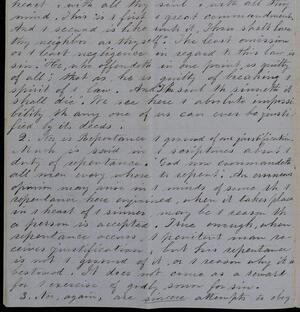 heart, with all thy soul, & with all thy
mind. This is & first & great commandment,
And & second is like unto it, Thou shalt love
thy neighbor as thyself. The least omission
or & least negligence in regard to this law is
sin. He, who offendeth in one point, is guilty
of all; that is he is guilty of breaking &
spirit of & law. And The soul that sinneth it
shall die. We see here & absolute impossi-
bility that any one of us can ever be justi-
fied by it deeds.
2. Nor is Repentance & ground of our justification.
Much is said in & scriptures about &
duty of repentance. God now commandeth
all men every where to repent. An erroneous
opinion may arise in & minds of some that
repentance here enjoined, when it takes place
in & heart of & sinner may be & reason that
a person is accepted. True enough, when
repentance occurs, & penitent man re-
ceives justification, but his repentance
is not & ground of it, or & reason why it is
bestowed. It does not come as a reward
for & exercise of godly sorrow for sin.
3. Nor, again, are sincere attempts to obey